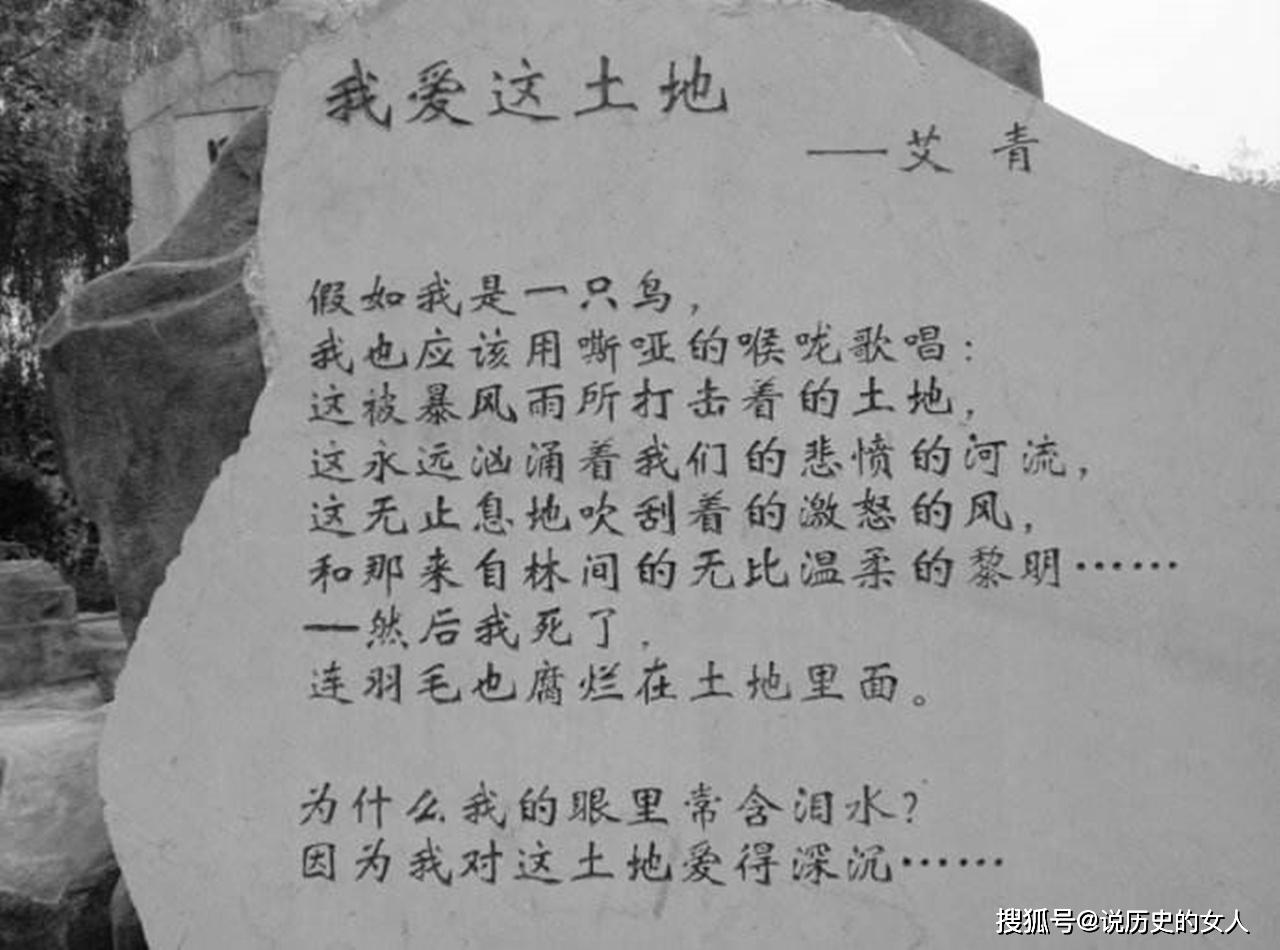 我爱这土地
——艾青
假如我是一只鸟，
我也应该用嘶哑的喉咙歌唱：
这被暴风雨所打击着的土地，
这永远汹涌着我们的悲愤的河流，
这无止息地吹刮着的激怒的风，
和那来自林间的无比温柔的黎明……
——然后我死了，
连羽毛也腐烂在土地里面。
为什么我的眼里常含泪水？
因为我对这土地爱得深沉……
搜狐号@说历史的女人